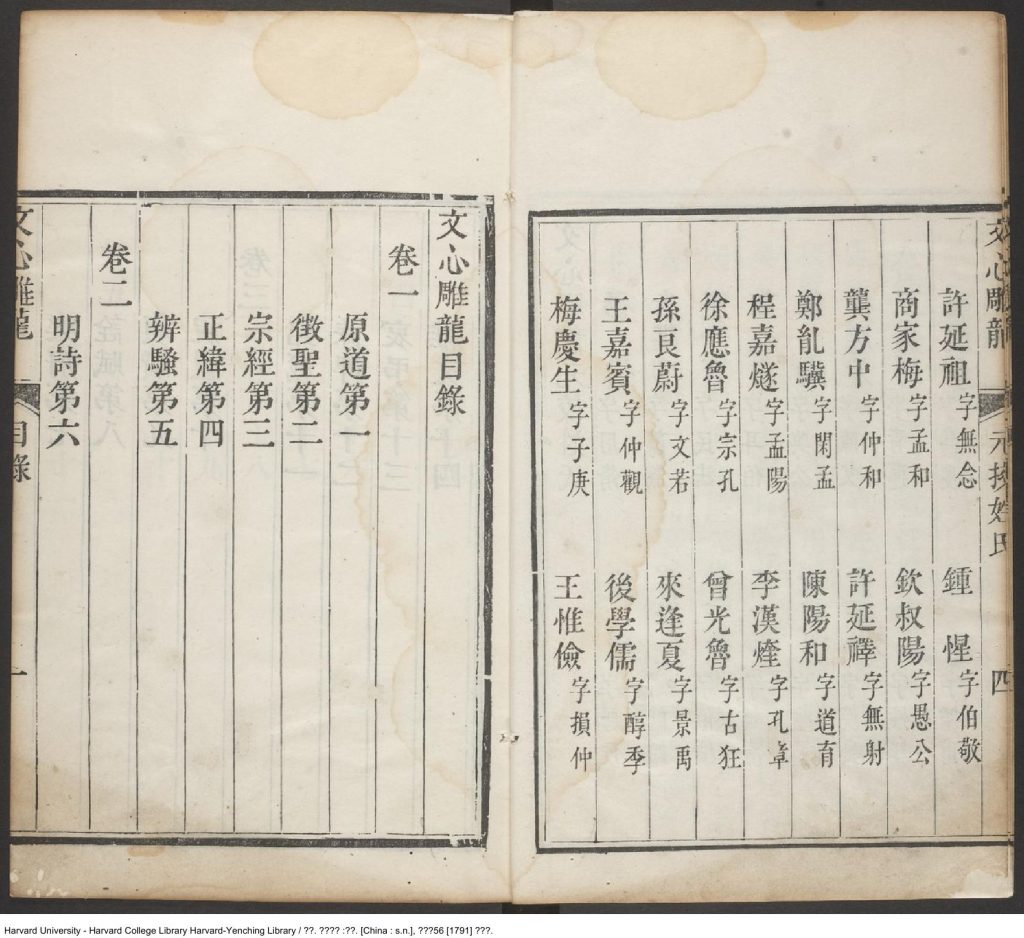 文心雕龍 元挍姓氏 四
許延祖字無念 鍾惺字伯敬
商家梅字孟和 欽叔陽字愚公
龔方中字仲和 許延禪字無射
鄭胤驥字閑孟 陳陽和字道育
程嘉燧字孟陽 李漢煃字孔章
徐應魯字宗孔 曾光魯字古狂
孫良蔚字文若 來逢夏字景禹
王嘉賓字仲觀 後學儒字醇季
梅慶生字子庚 王惟儉字損仲
文心雕龍目錄
卷一
原道第一
徵聖第二
宗經第三
正緯第四
辨騷第五
卷二
明詩第六
文心雕龍 目錄 一
Harvard University - Harvard College Library Harvard-Yenching Library / ??. ???? :??. [China : s.n.], ???56 [1791] ???.